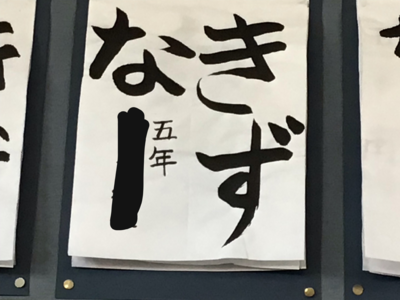 きず
な
五年